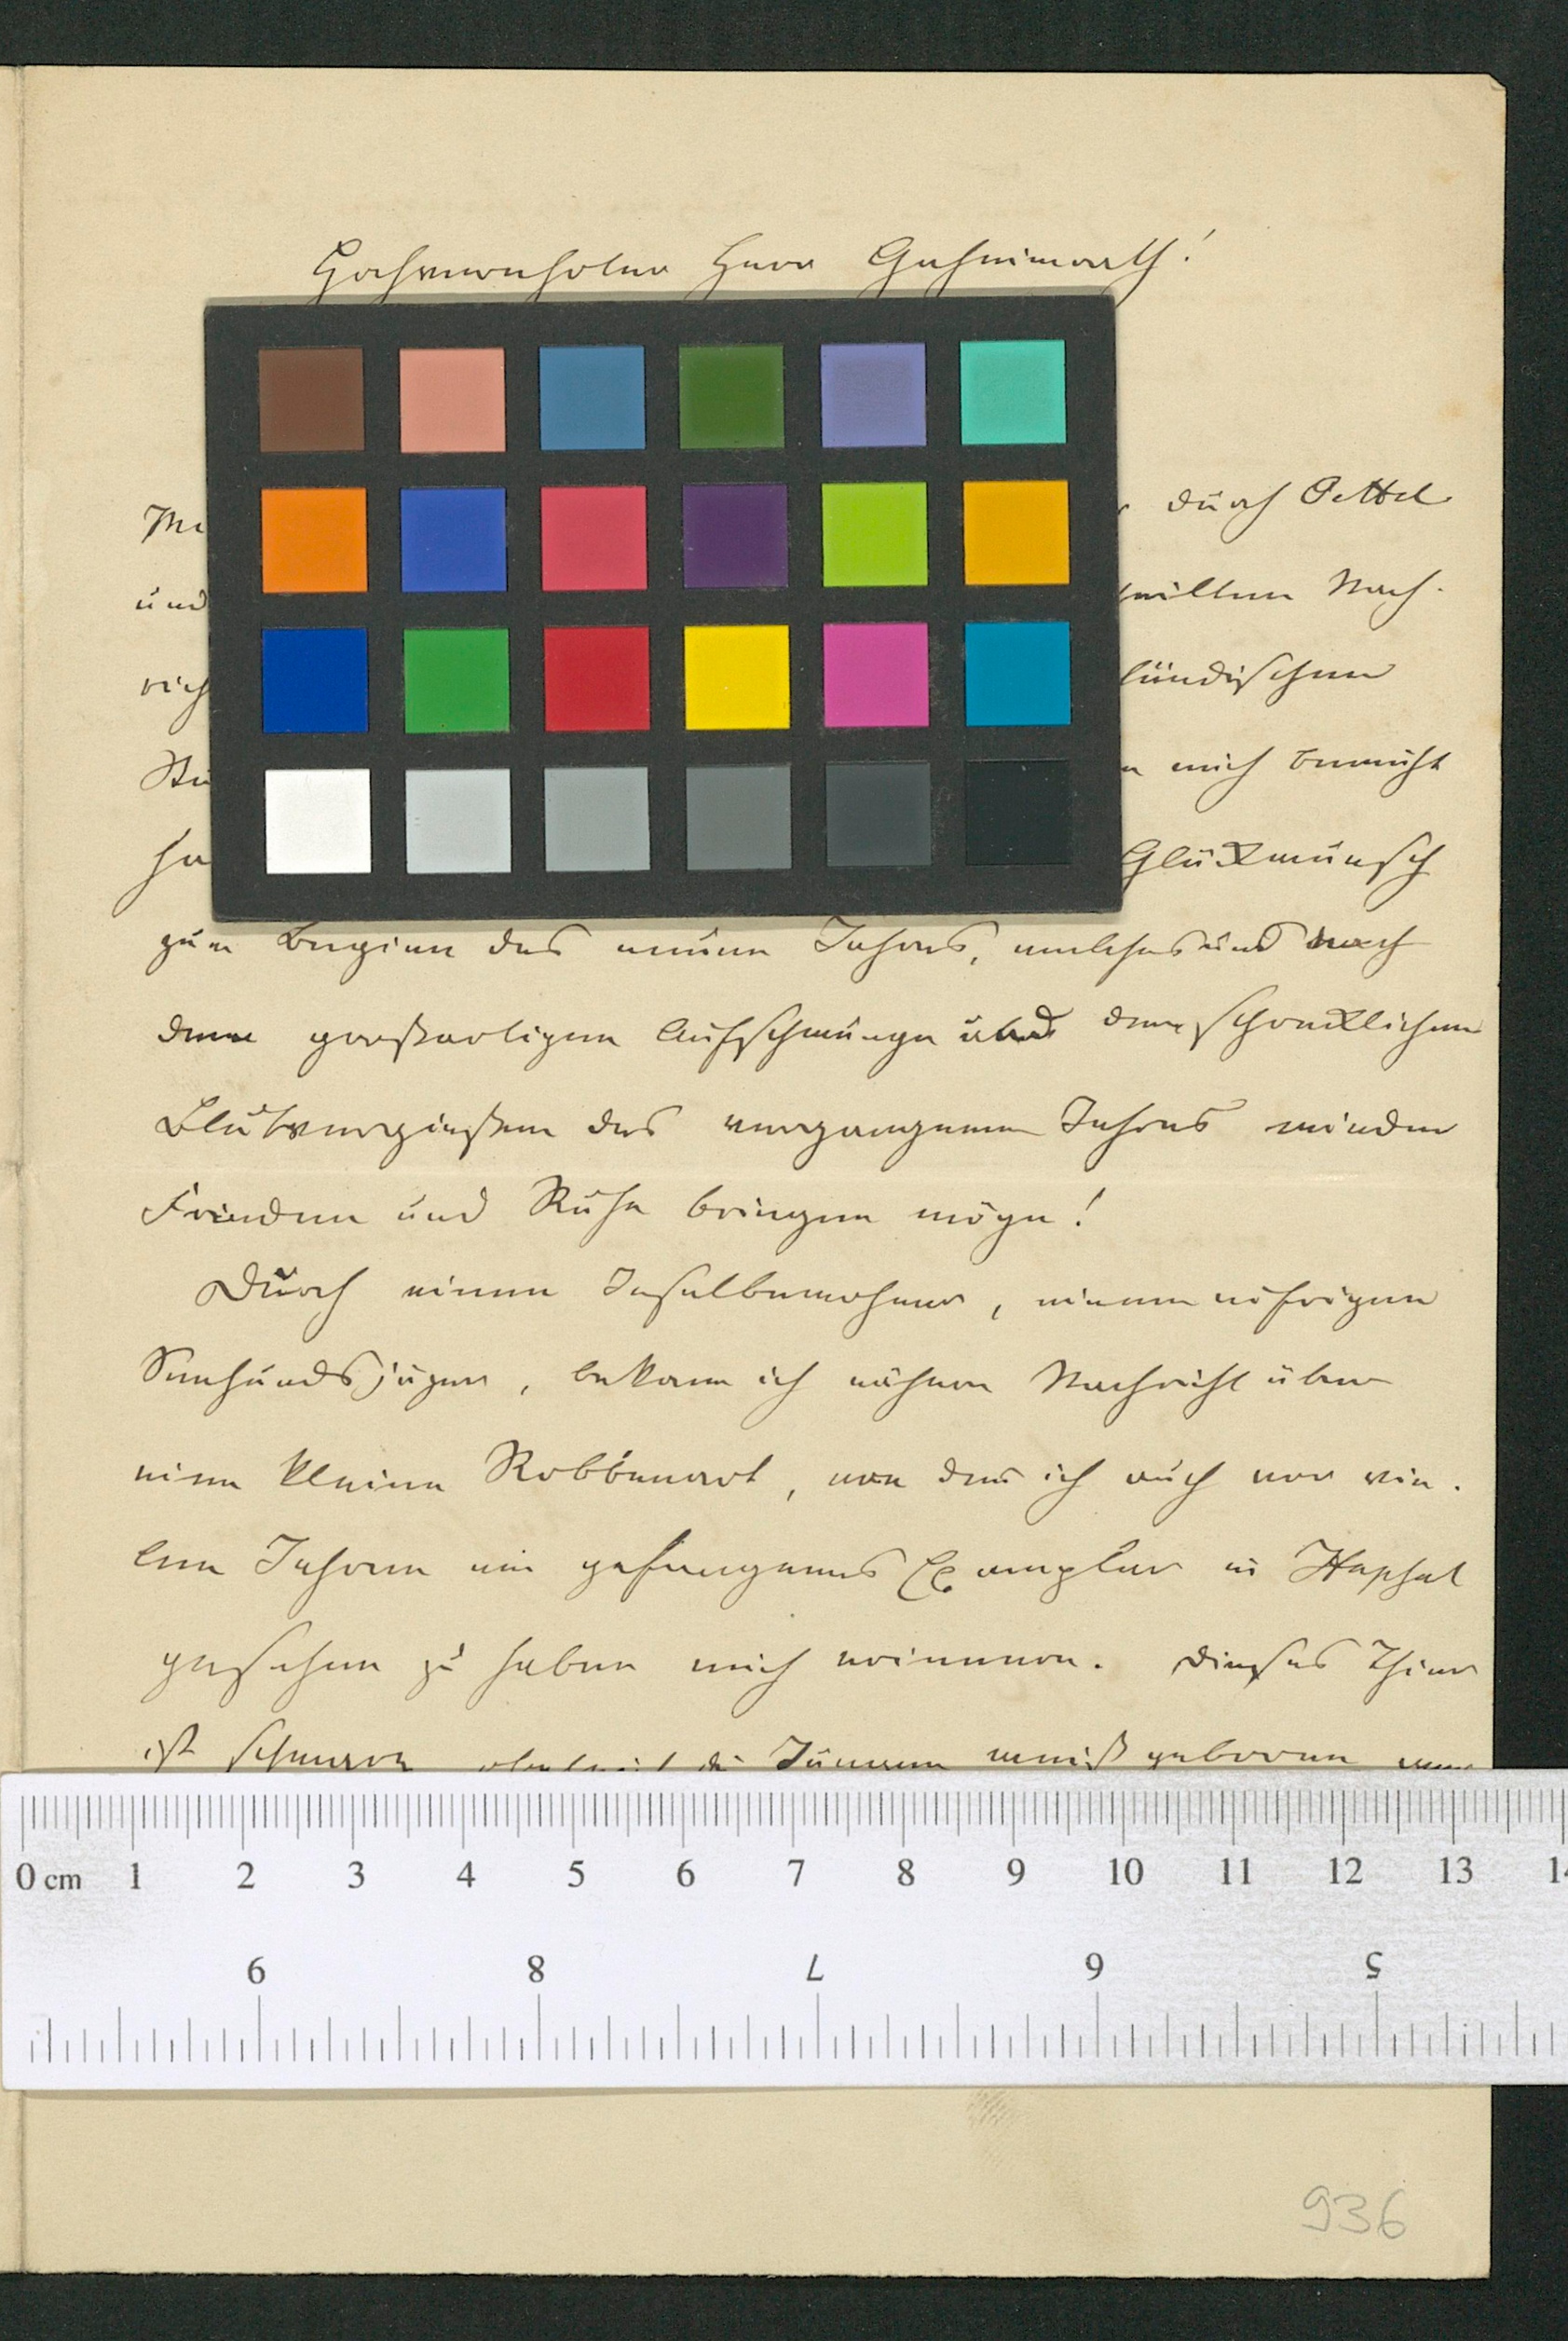 Hochverehrter Herr Geheimrath!
durch Pettel
und
theilten Nach-
rich
ländischen
mich bemüht
ha
Glückwunsch
zum Beginn des neuen Jahres, welches uns nach
dem großartigen Aufschwunge und dem schrecklichen
Blutvergießen des vergangenen Jahres wieder
Frieden und Ruhe bringen möge!
Durch einen Inselbewohner, einen eifrigen
Seehundsjäger, bekam ich nähere Nachricht über
eine kleine Robbenart, von der ich auch vor vie-
len Jahren ein gefangenes Exemplar in Hapsal
gesehen zu haben mich erinnere. Dieses Thier
ist schwarz obgleich die Jungen weiß geboren
0 cm 1 2 3 4 5 6 7 8 9 10 11 12 13 14
9 8 7 6 5
936